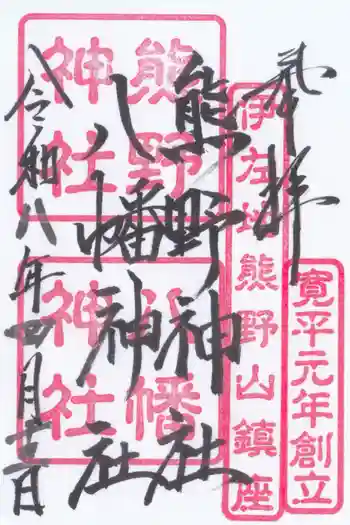 奉拝
寛平元年創立
伊左地熊野山鎮座
熊野神社
八幡神社
熊野神社
八幡神社
令和八年四月十二日